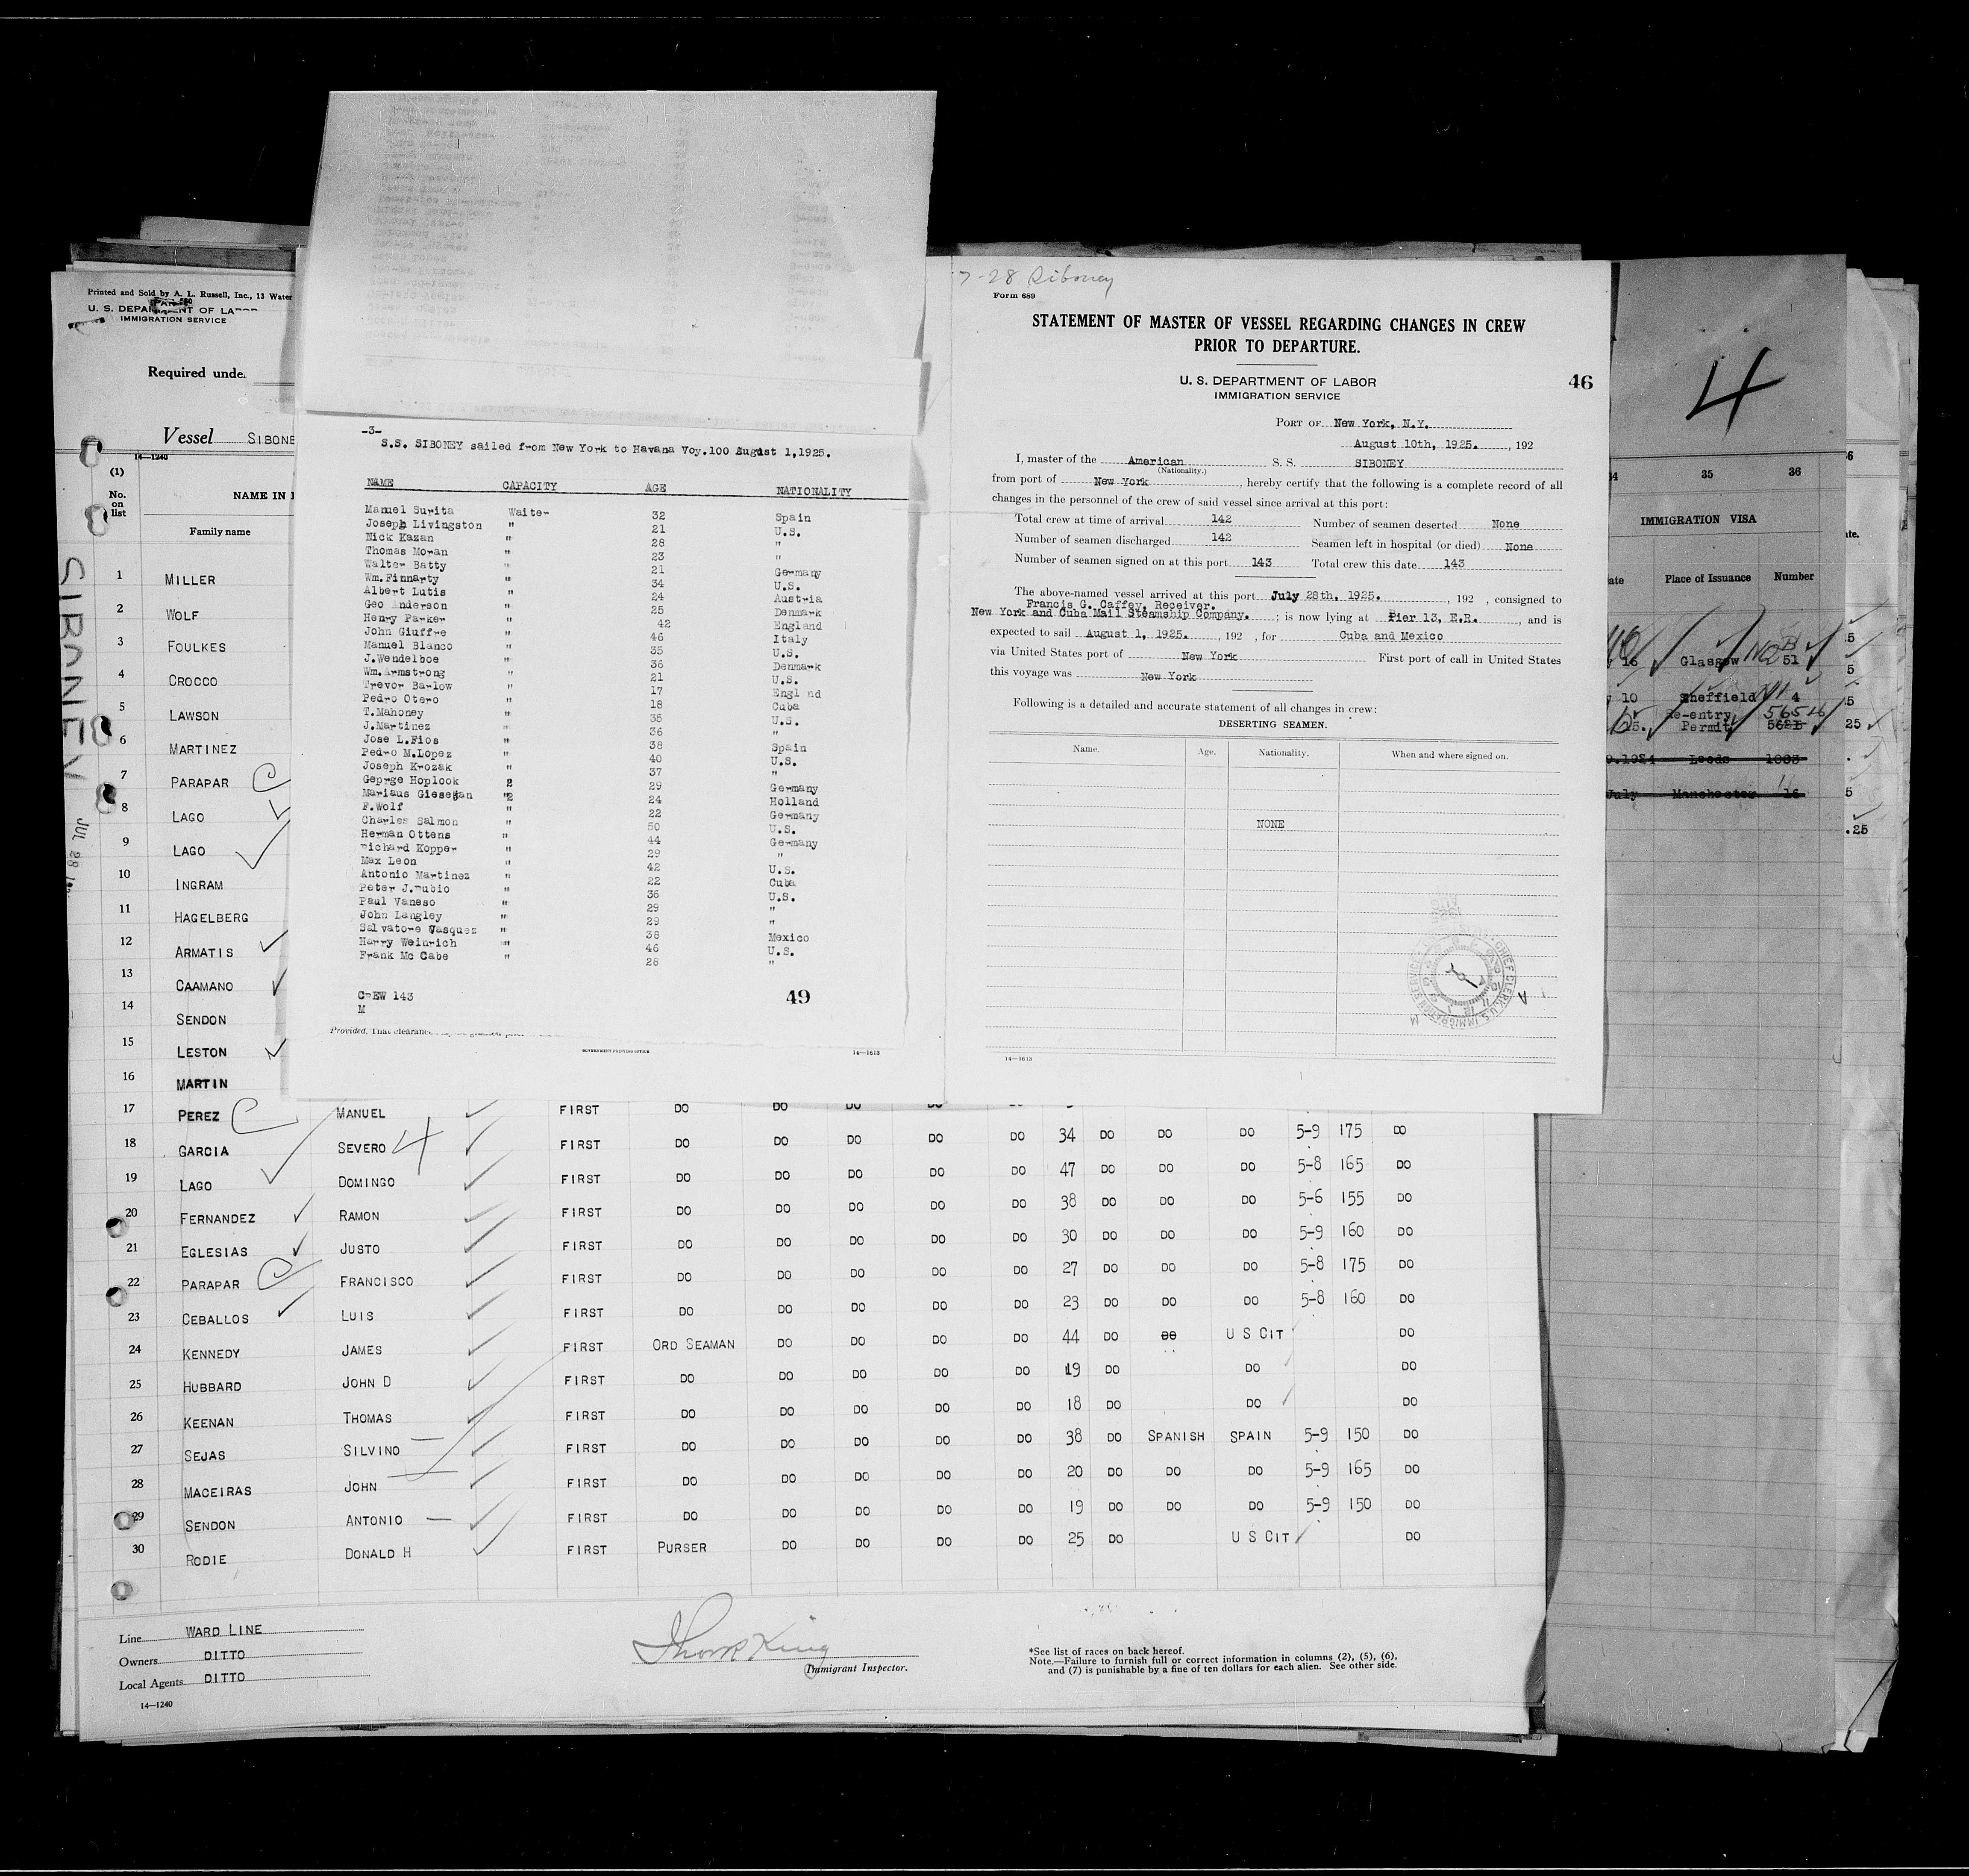 Printed and Sold by A. L. Russell, Inc., 13 Water
U. S. DEPARTMENT OF LABOR
IMMIGRATION SERVICE
Required unde
Vessel SIBONE
14—1240
(1)
No. on list
NAME IN
Family name
SIBONEY
JUL 28
1 MILLER
2 WOLF
3 FOULKES
4 CROCCO
5 LAWSON
6 MARTINEZ
7 PARAPAR C
8 LAGO
9 LAGO
10 INGRAM
11 HAGELBERG
12 ARMATIS
13 CAAMANO
14 SENDON
15 LESTON
16 MARTIN
17 PEREZ C MANUEL FIRST DO DO DO DO DO
18 GARCIA SEVERO 4 FIRST DO DO DO DO DO 34 DO DO DO 5-9 175 DO
19 LAGO DOMINGO FIRST DO DO DO DO DO 47 DO DO DO 5-8 165 DO
20 FERNANDEZ RAMON FIRST DO DO DO DO DO 38 DO DO DO 5-6 155 DO
21 EGLESIAS JUSTO FIRST DO DO DO DO DO 30 DO DO DO 5-9 160 DO
22 PARAPAR C FRANCISCO FIRST DO DO DO DO DO 27 DO DO DO 5-8 175 DO
23 CEBALLOS LUIS FIRST DO DO DO DO DO 23 DO DO DO 5-8 160 DO
24 KENNEDY JAMES FIRST ORD SEAMAN DO DO DO DO 44 DO DO U S CIT DO
25 HUBBARD JOHN D FIRST DO DO DO DO DO 19 DO DO DO
26 KEENAN THOMAS FIRST DO DO DO DO DO 18 DO DO DO
27 SEJAS SILVINO FIRST DO DO DO DO DO 38 DO SPANISH SPAIN 5-9 150 DO
28 MACEIRAS JOHN FIRST DO DO DO DO DO 20 DO DO DO 5-9 165 DO
29 SENDON ANTONIO FIRST DO DO DO DO DO 19 DO DO DO 5-9 150 DO
30 RODIE DONALD H FIRST PURSER DO DO DO DO 25 DO U S CIT DO
Line WARD LINE
Owners DITTO
Local Agents DITTO
14—1240
Thos King
Immigrant Inspector.
*See list of races on back hereof.
Note.—Failure to furnish full or correct information in columns (2), (5), (6),
and (7) is punishable by a fine of ten dollars for each alien. See other side.
-3-
S.S. SIBONEY sailed from New York to Havana Voy.100 August 1,1925.
NAME CAPACITY AGE NATIONALITY
Manuel Surita Waiter 32 Spain
Joseph Livingston " 21 U.S.
Nick Kazan " 28 "
Thomas Moran " 23 "
Walter Batty " 21 Germany
Wm.Finnarty " 34 U.S.
Albert Lutis " 24 Austria
Geo Anderson " 25 Denmark
Henry Parker " 42 England
John Giuffre " 46 Italy
Manuel Blanco " 35 U.S.
J.Wendelboe " 36 Denmark
Wm.Armstrong " 21 U.S.
Trevor Barlow " 17 Engl nd
Pedro Otero " 18 Cuba
T.Mahoney " 35 U.S.
J.Martinez " 36 "
Jose L.Fios " 38 Spain
Pedro M.Lopez " 40 U.S.
Joseph Krozak " 37 "
George Hoplook " 29 Germany
Mariaus Giesegan " 24 Holland
F.Wolf " 22 Germany
Charles Salmon " 50 U.S.
Herman Ottens " 44 Germany
Richard Kopper " 29 "
Max Leon " 42 U.S.
Antonio Martinez " 22 Cuba
Peter J.Rubio " 36 U.S.
Paul Vaneso " 29 "
John Langley " 29 "
Salvatore Vasquez " 38 Mexico
Harry Weinrich " 46 U.S.
Frank Mc Cabe " 28 "
CREW 143
M
49
Provided, That clearance
GOVERNMENT PRINTING OFFICE
14—1613
7-28 Siboney
Form 689
STATEMENT OF MASTER OF VESSEL REGARDING CHANGES IN CREW
PRIOR TO DEPARTURE.
U. S. DEPARTMENT OF LABOR
IMMIGRATION SERVICE
46
PORT OF New York, N.Y.
August 10th, 1925. , 192
I, master of the American S. S. SIBONEY
(Nationality.)
from port of New York , hereby certify that the following is a complete record of all
changes in the personnel of the crew of said vessel since arrival at this port:
Total crew at time of arrival 142 Number of seamen deserted None
Number of seamen discharged 142 Seamen left in hospital (or died) None
Number of seamen signed on at this port 143 Total crew this date 143
The above-named vessel arrived at this port July 28th, 1925. , 192 , consigned to
Francis G. Caffey, Receiver.
New York and Cuba Mail Steamship Company. ; is now lying at Pier 13, E.R. , and is
expected to sail August 1, 1925. , 192 , for Cuba and Mexico
via United States port of New York First port of call in United States
this voyage was New York
Following is a detailed and accurate statement of all changes in crew:
DESERTING SEAMEN.
Name. Age. Nationality. When and where signed on.
NONE
CHIEF CLERK U.S. IMMIGRATION SERVICE
14—1613
4
34 35 36
IMMIGRATION VISA
ate Place of Issuance Number
16 Glasgow 51
10 Sheffield 4
25. Re-entry Permit 5654
9.1924 Leeds 1003
July Manchester 16
6
ate.
5
5
5
25
5
.25